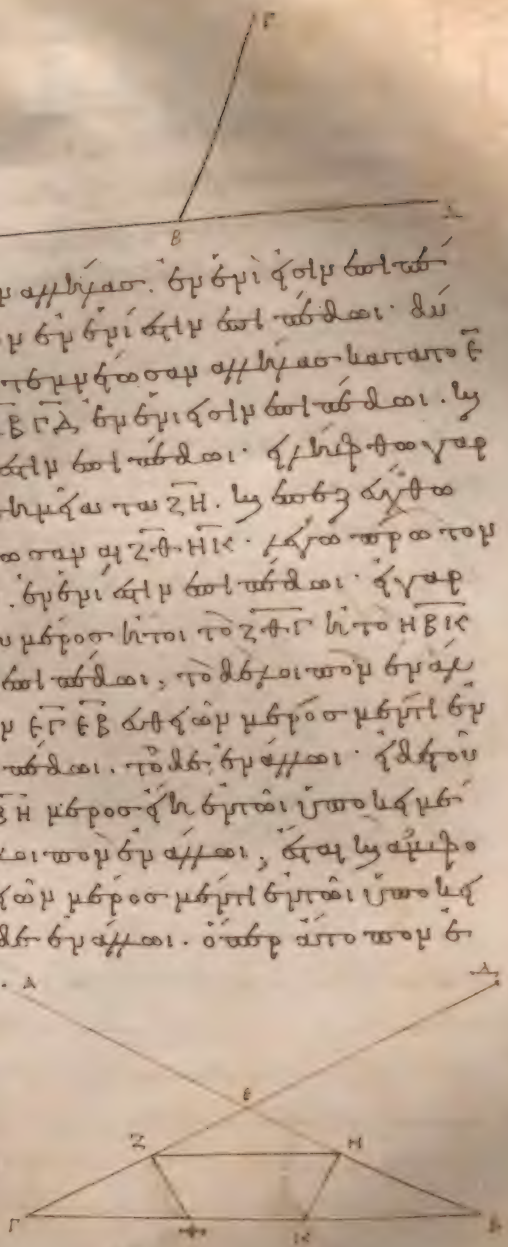 Γ
Β
Δ
ν ἀλλήλασ. ἐν ἑνί εἰσιν ἐπιπέ
ον ἐν ἑνί ἐστιν ἐπιπέδωι. δύ
τεμνέτωσαν ἀλλήλασ κατὰ τὸ Ε
Β ΓΔ, ἐν ἑνί εἰσιν ἐπιπέδωι. καὶ
ἐστιν ἐπιπέδωι. εἰλήφθω γὰρ
σημεῖα τὰ ΖΗ. καὶ ἐπεζεύχθω
ωσαν αἱ ΖΘ. ΗΚ. λέγω πρῶτον
ἐν ἑνί ἐστιν ἐπιπέδωι. εἰ γάρ
υ μέροσ ἤτοι τὸ ΖΘΓ ἢ τὸ ΗΒΚ
ἐπιπέδωι, τὸ δὲ λοιπὸν ἐν ἄλ
ν ΕΓ ΕΒ εὐθειῶν μέροσ μέν τι ἐν
πέδωι. τὸ δὲ ἐν ἄλλωι. εἰ δὲ τοῦ
ΒΗ μέροσ ᾖ ἐν τῶι ὑποκειμέ
λοιπὸν ἐν ἄλλωι, ἔσται καὶ ἀμφο
ειῶν μέροσ μέν τι ἐν τῶι ὑποκει
δὲ ἐν ἄλλωι. ὅπερ ἄτοπον ἐ
Α Δ
Ε
Ζ Η
Γ Θ Κ Β